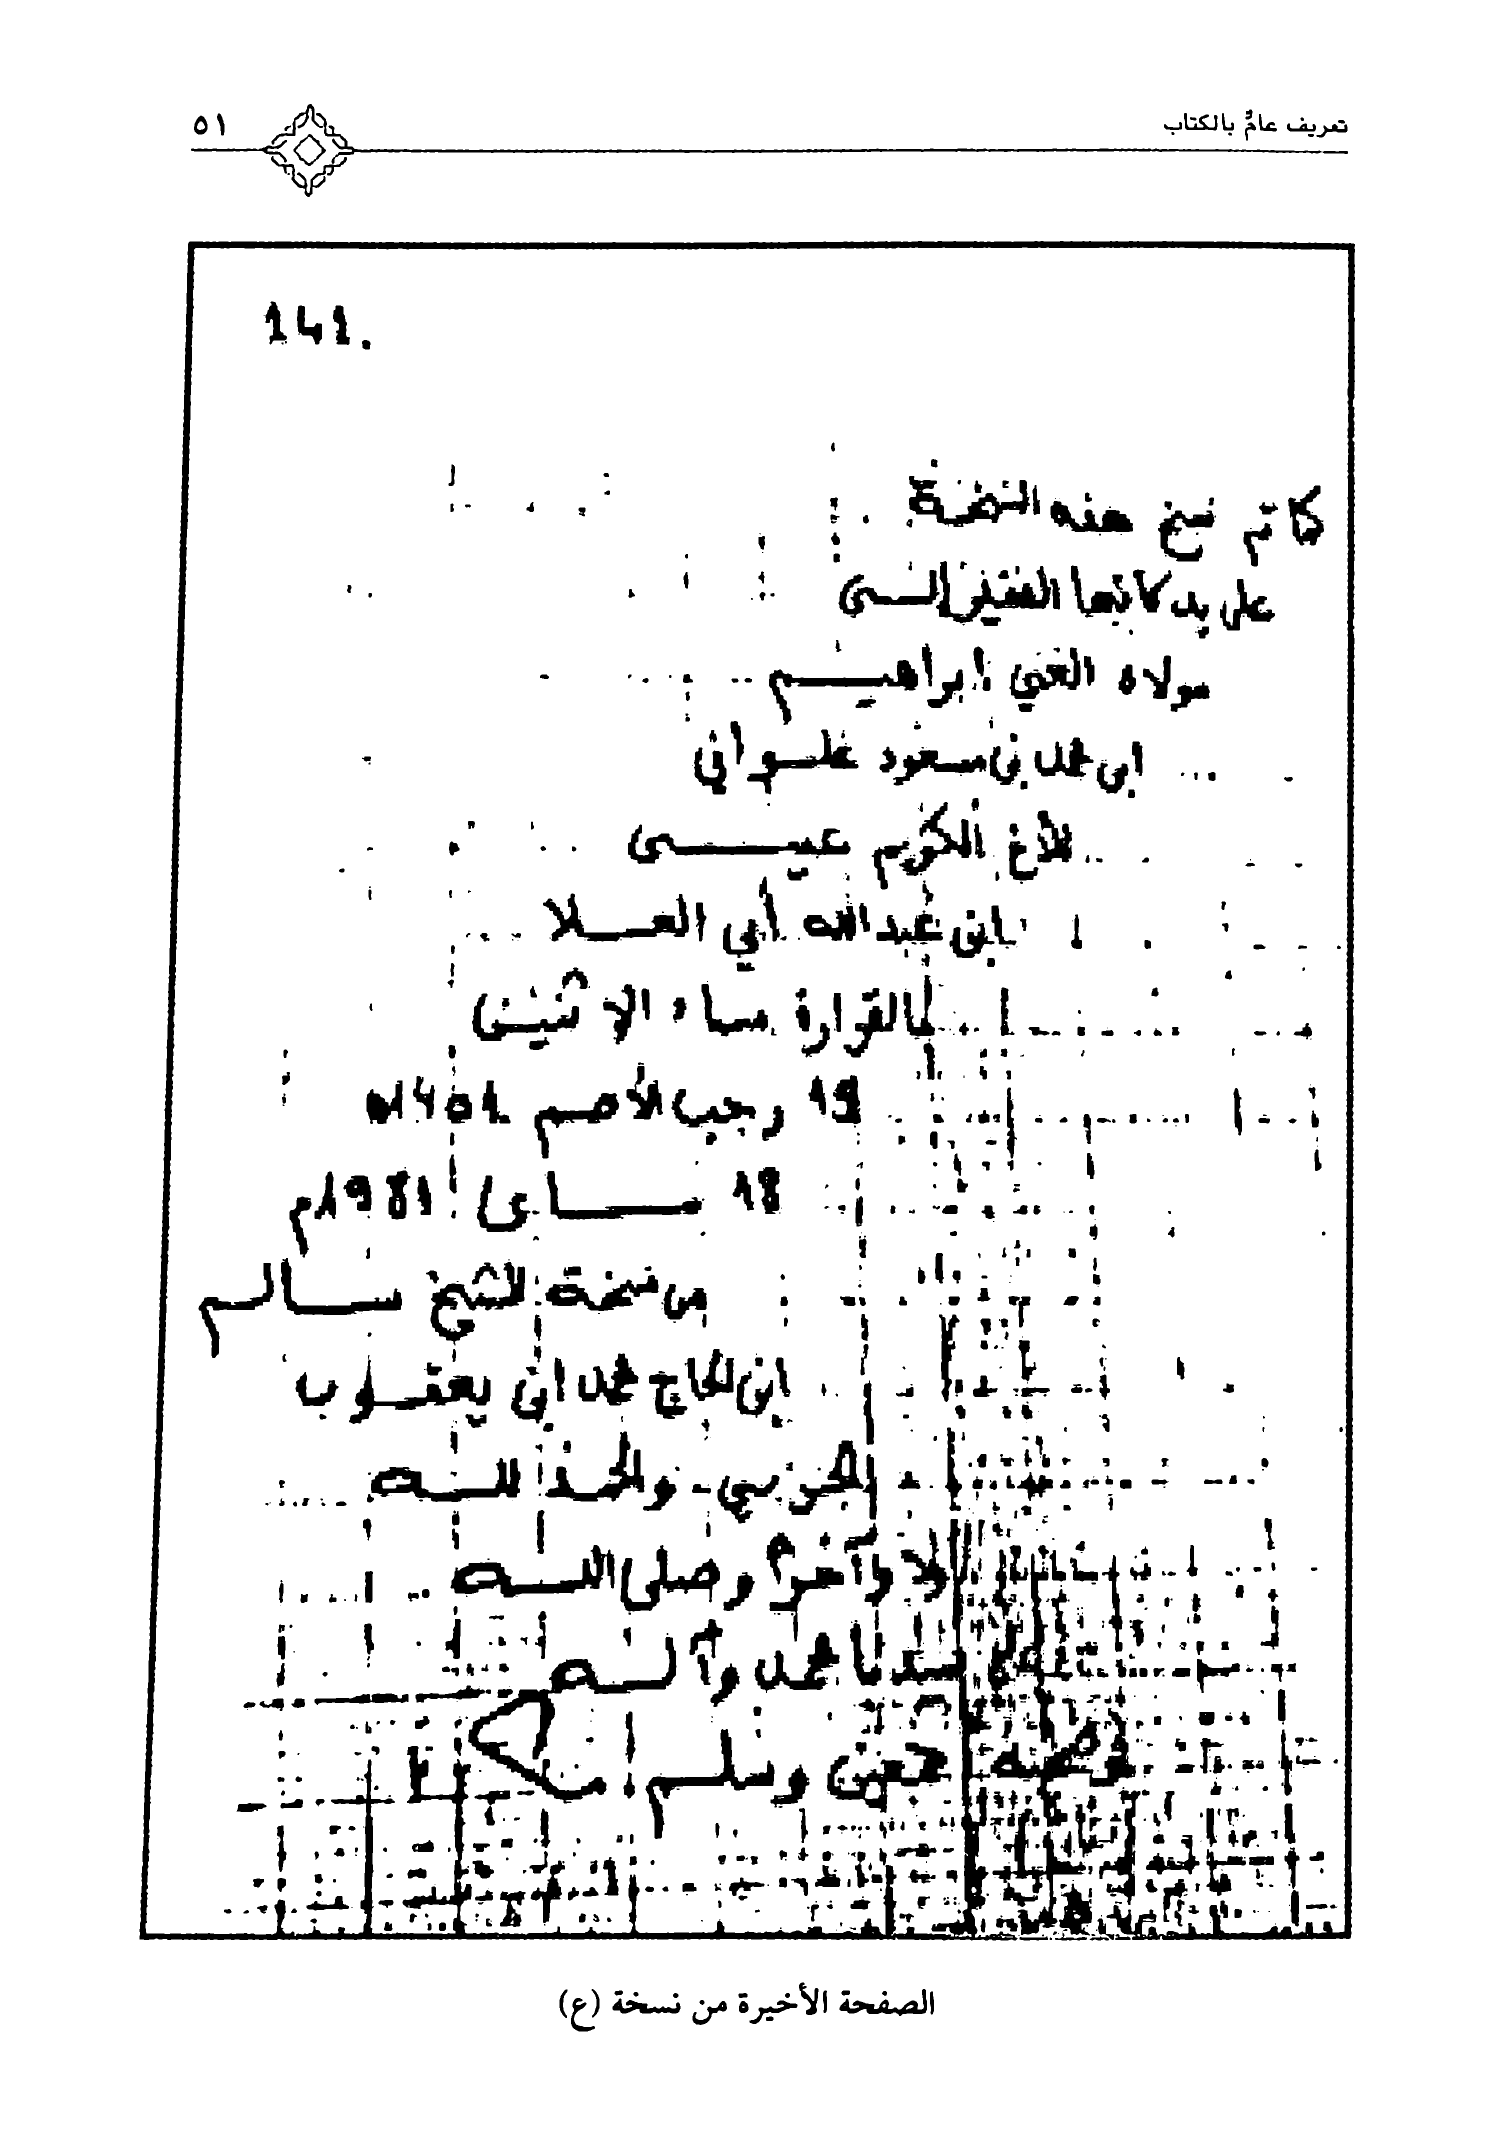 تعريف عامٌّ بالكتاب
٥١
141.
كما تم نسخ هذه النسخة
على يد كاتبها الفقير إلى
مولاه الغني ابراهيم
ابن محمد بن مسعود علواني
للأخ الكريم عيسى
ابن عبد الله أبي العلا
بالقرارة مساء الاثنين
رجب الأصم 1401ه
18 ماي 1981م
من نسخة الشيخ سالم
ابن الحاج محمد ابن يعقوب
الجربي. والحمد لله
أولا وآخرا وصلى الله
على سيدنا محمد وآله
وصحبه أجمعين وسلم
الصفحة الأخيرة من نسخة (ع)